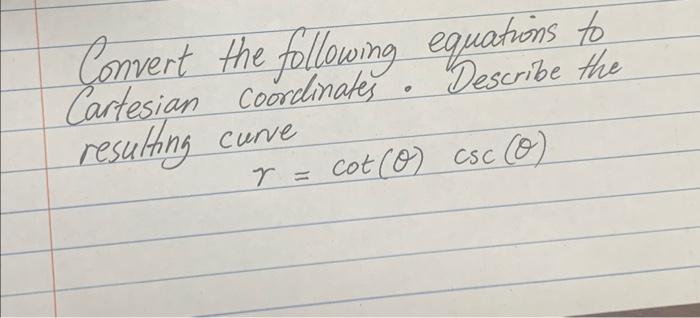 Convert the following equations to
Cartesian coordinates. Describe the
resulting curve
r = cot(θ) csc(θ)